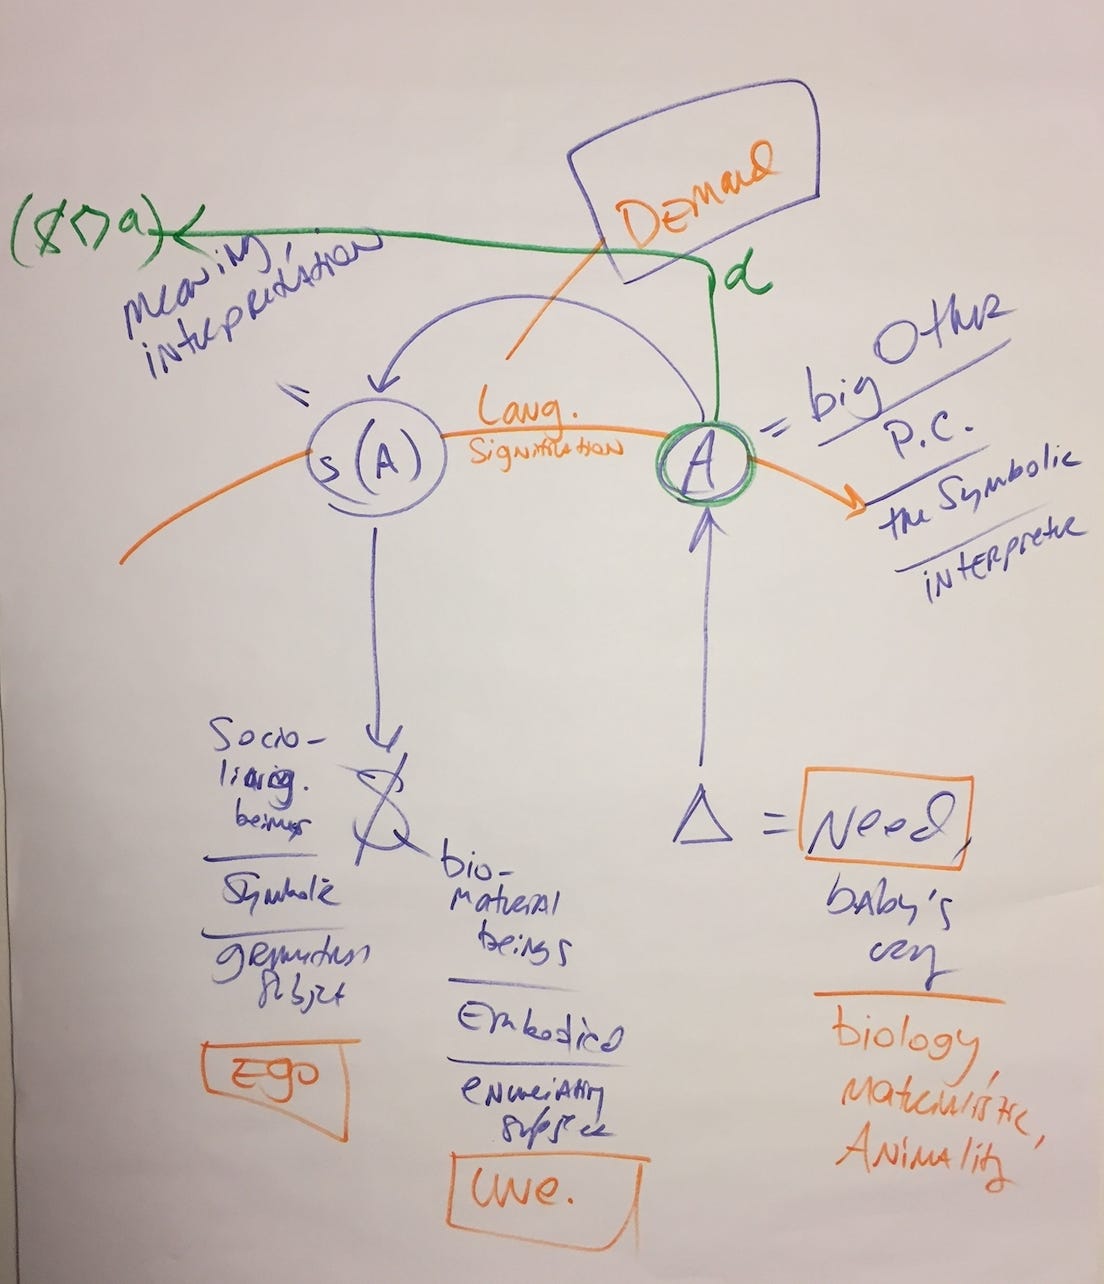 Demand
($◊a)
d
meaning,
interpretation
big Other
P.C.
the Symbolic
interpreter
=
Lang.
Signification
s(A)
A
=
Socio-
living.
beings
Symbolic
$
bio-
material
beings
Embodied
enunciating
subject
Une.
subject
Ego
Δ = Need,
baby's
cry
biology,
materialistic,
Animality